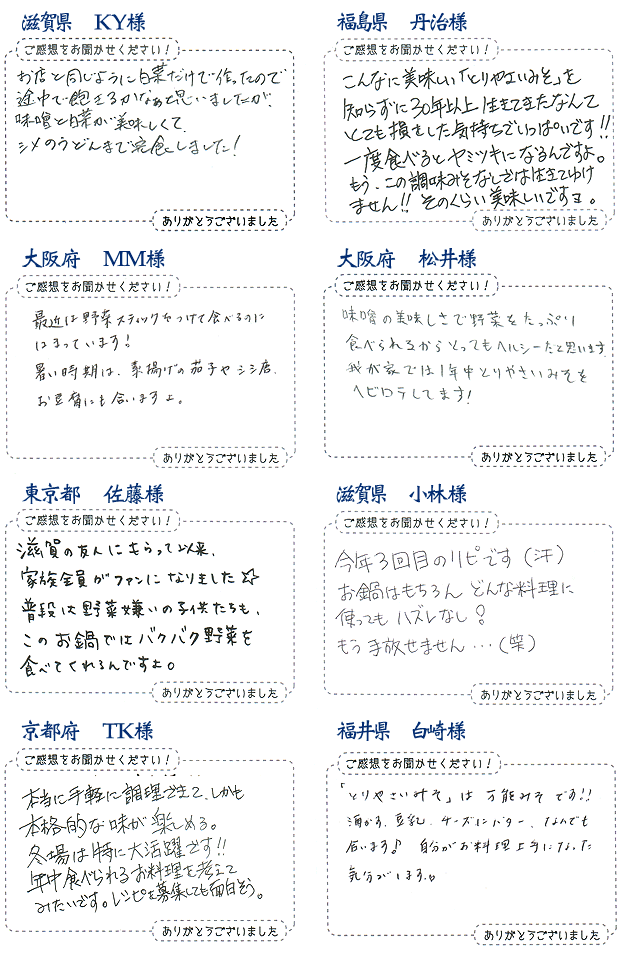 滋賀県 KY様
ご感想をお聞かせください！
お店と同じように白菜だけで作ったので
途中で飽きるかなぁと思いましたが、
味噌と白菜が美味しくて
シメのうどんまで完食しました！
ありがとうございました
福島県 丹治様
ご感想をお聞かせください！
こんなに美味しい「とりやさいみそ」を
知らずに30年以上生きてきたなんて
とても損をした気持ちでいっぱいです!!
一度食べるとヤミツキになるんですよ。
もう、この調味みそなしでは生きてゆけ
ません!! そのくらい美味しいですヨ。
ありがとうございました
大阪府 MM様
ご感想をお聞かせください！
最近は野菜スティックをつけて食べるのに
はまっています！
暑い時期は、素揚げの茄子やシシ唐、
お豆腐にも合いますよ。
ありがとうございました
大阪府 松井様
ご感想をお聞かせください！
味噌の美味しさで野菜をたっぷり
食べられるからとってもヘルシーだと思います
我が家では1年中とりやさいみそを
ヘビロテしてます！
ありがとうございました
東京都 佐藤様
ご感想をお聞かせください！
滋賀の友人にもらって以来、
家族全員がファンになりました☆
普段は野菜嫌いの子供たちも、
このお鍋ではバクバク野菜を
食べてくれるんですよ。
ありがとうございました
滋賀県 小林様
ご感想をお聞かせください！
今年3回目のリピです（汗）
お鍋はもちろん どんな料理に
使っても ハズレなし！
もう手放せません…（笑）
ありがとうございました
京都府 TK様
ご感想をお聞かせください！
本当に手軽に調理できて、しかも
本格的な味が楽しめる。
冬場は特に大活躍です!!
年中食べられるお料理を考えて
みたいです。レシピを募集しても面白そう。
ありがとうございました
福井県 白崎様
ご感想をお聞かせください！
「とりやさいみそ」は 万能みそです!!
酒かす、豆乳、チーズにバター、なんでも
合います♪ 自分がお料理上手になった
気分がします。
ありがとうございました